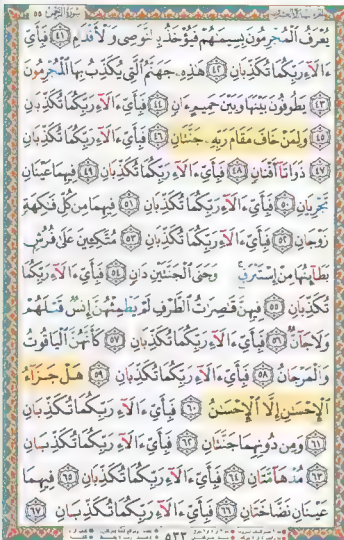 سُورَةُ الرَّحْمٰن ٥٥
يُعْرَفُ ٱلْمُجْرِمُونَ بِسِيمَٰهُمْ فَيُؤْخَذُ بِٱلنَّوَٰصِى وَٱلْأَقْدَامِ ٤١ فَبِأَىِّ
ءَالَآءِ رَبِّكُمَا تُكَذِّبَانِ ٤٢ هَٰذِهِۦ جَهَنَّمُ ٱلَّتِى يُكَذِّبُ بِهَا ٱلْمُجْرِمُونَ
٤٣ يَطُوفُونَ بَيْنَهَا وَبَيْنَ حَمِيمٍ ءَانٍ ٤٤ فَبِأَىِّ ءَالَآءِ رَبِّكُمَا تُكَذِّبَانِ
٤٥ وَلِمَنْ خَافَ مَقَامَ رَبِّهِۦ جَنَّتَانِ ٤٦ فَبِأَىِّ ءَالَآءِ رَبِّكُمَا تُكَذِّبَانِ
٤٧ ذَوَاتَآ أَفْنَانٍ ٤٨ فَبِأَىِّ ءَالَآءِ رَبِّكُمَا تُكَذِّبَانِ ٤٩ فِيهِمَا عَيْنَانِ
تَجْرِيَانِ ٥٠ فَبِأَىِّ ءَالَآءِ رَبِّكُمَا تُكَذِّبَانِ ٥١ فِيهِمَا مِن كُلِّ فَٰكِهَةٍ
زَوْجَانِ ٥٢ فَبِأَىِّ ءَالَآءِ رَبِّكُمَا تُكَذِّبَانِ ٥٣ مُتَّكِـِٔينَ عَلَىٰ فُرُشٍۭ
بَطَآئِنُهَا مِنْ إِسْتَبْرَقٍ ۚ وَجَنَى ٱلْجَنَّتَيْنِ دَانٍ ٥٤ فَبِأَىِّ ءَالَآءِ رَبِّكُمَا
تُكَذِّبَانِ ٥٥ فِيهِنَّ قَٰصِرَٰتُ ٱلطَّرْفِ لَمْ يَطْمِثْهُنَّ إِنسٌ قَبْلَهُمْ
وَلَا جَآنٌّ ٥٦ فَبِأَىِّ ءَالَآءِ رَبِّكُمَا تُكَذِّبَانِ ٥٧ كَأَنَّهُنَّ ٱلْيَاقُوتُ
وَٱلْمَرْجَانُ ٥٨ فَبِأَىِّ ءَالَآءِ رَبِّكُمَا تُكَذِّبَانِ ٥٩ هَلْ جَزَآءُ
ٱلْإِحْسَٰنِ إِلَّا ٱلْإِحْسَٰنُ ٦٠ فَبِأَىِّ ءَالَآءِ رَبِّكُمَا تُكَذِّبَانِ
٦١ وَمِن دُونِهِمَا جَنَّتَانِ ٦٢ فَبِأَىِّ ءَالَآءِ رَبِّكُمَا تُكَذِّبَانِ
٦٣ مُدْهَآمَّتَانِ ٦٤ فَبِأَىِّ ءَالَآءِ رَبِّكُمَا تُكَذِّبَانِ ٦٥ فِيهِمَا
عَيْنَانِ نَضَّاخَتَانِ ٦٦ فَبِأَىِّ ءَالَآءِ رَبِّكُمَا تُكَذِّبَانِ ٦٧
٥٣٣